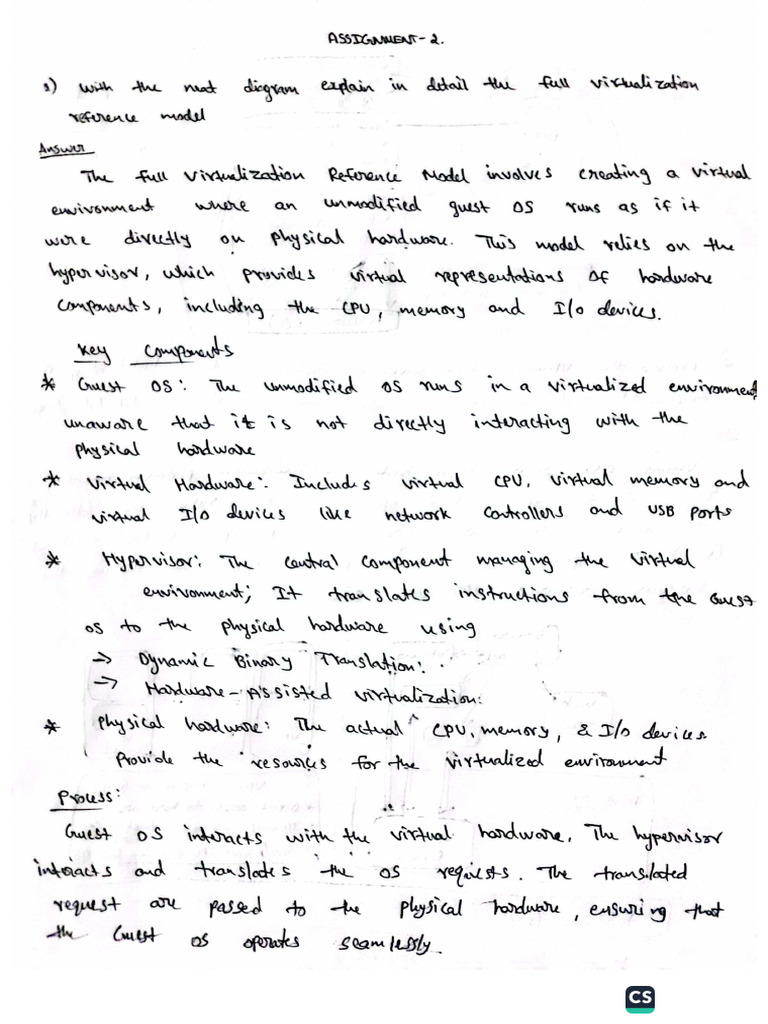 ASSIGNMENT-2.
1) with the neat diagram explain in detail the full virtualization
reference model
Answer
The full virtualization Reference Model involves creating a virtual
environment where an unmodified guest OS runs as if it
were directly on physical hardware. This model relies on the
hypervisor, which provides virtual representations of hardware
components, including the CPU, memory and I/O devices.
Key Components
* Guest OS: The unmodified OS runs in a virtualized environment
unaware that it is not directly interacting with the
physical hardware
* Virtual Hardware: Includes virtual CPU, virtual memory and
virtual I/O devices like network controllers and USB ports
* Hypervisor: The central component managing the virtual
environment; It translates instructions from the Guest
os to the physical hardware using
→ Dynamic Binary Translation:
→ Hardware-Assisted virtualization:
* Physical hardware: The actual CPU, memory, & I/O devices
Provide the resources for the virtualized environment
Process:
Guest OS interacts with the virtual hardware. The hypervisor
interacts and translates the OS requests. The translated
request are passed to the physical hardware, ensuring that
the Guest OS operates seamlessly.
CS